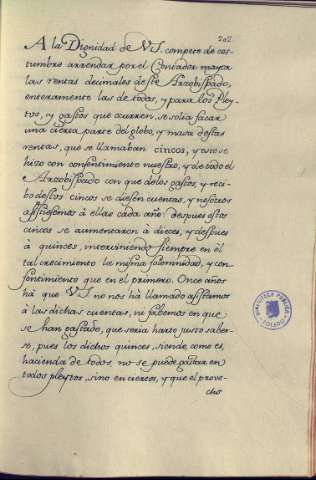 202
A la Dignidad de V.S. compete de cos-
tumbre arrendar por el Contador mayor
las rentas decimales deste Arzobispado,
enteramente las de todos, y para los Pley-
tos, y gastos que ocurren, se solia sacar
una cierta parte del globo, y masa destas
rentas, que se llamaban cincos, y esto se
hizo con consentimiento nuestro, y de todo el
Arzobispado con que de los gastos, y reci-
bo destos cincos se diesen cuentas, y nosotros
assistiesemos à ellas cada año: despues estos
cincos se aumentaron à dieces, y despues
à quinces, interviniendo siempre en èl
tal crecimiento la misma solemnidad, y con-
sentimiento que en el primero. Once años
hà que V.S. no nos hà llamado assistamos
à las dichas cuentas, ne sabemos en que
se han gastado, que seria harto justo saber-
se, pues los dichos quinces, siendo, como es,
hacienda de todos, no se puede gastar en
todos pleytos, sino en ciertos, y que el prove-
cho
BIBLIOTECA PUBLICA
TOLEDO